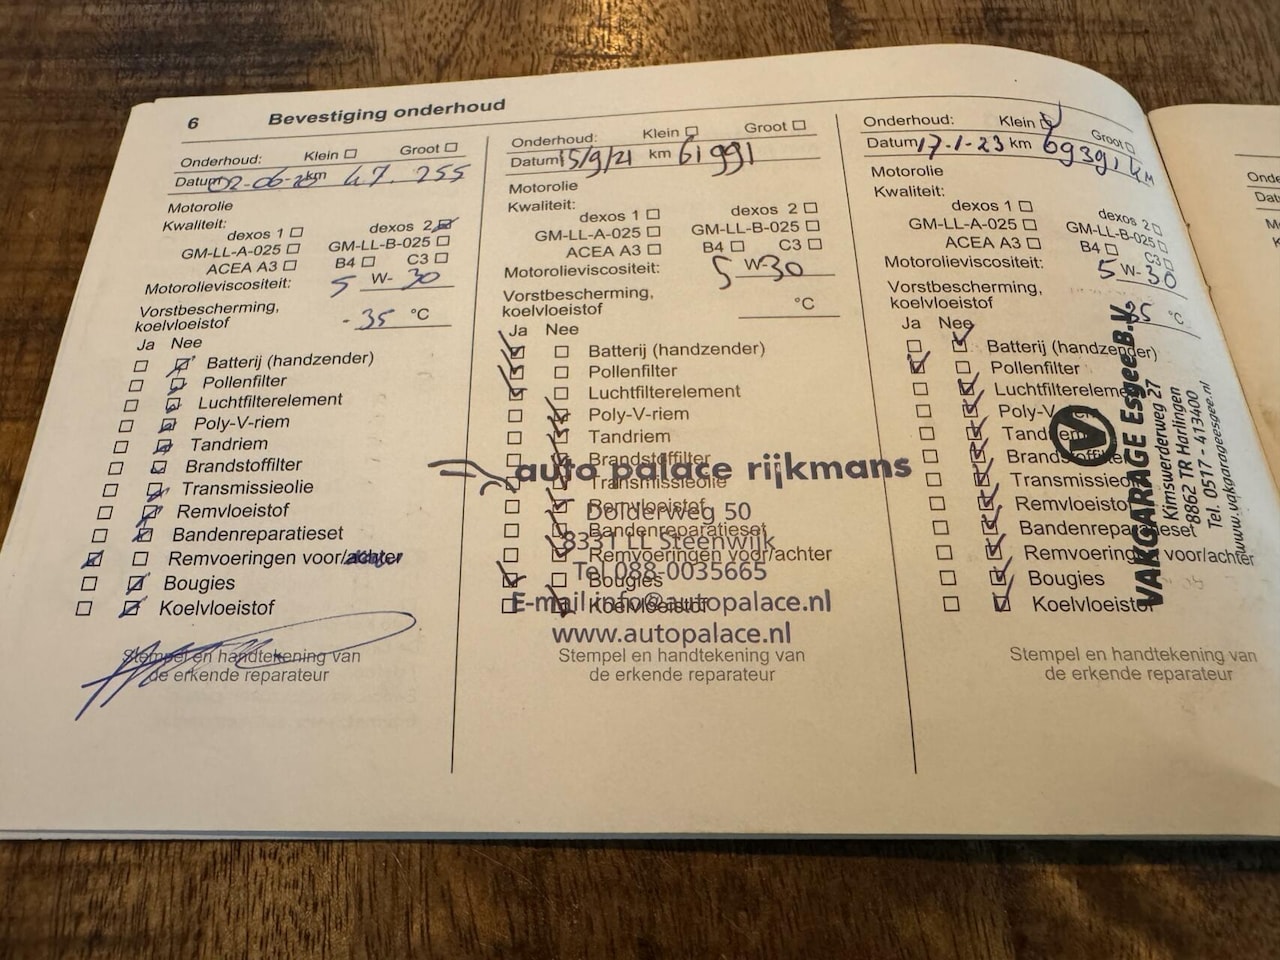 6 Bevestiging onderhoud
Onderhoud: Klein Groot
Datum 02-06-20 km 47.255
Motorolie
Kwaliteit:
dexos 1 dexos 2
GM-LL-A-025 GM-LL-B-025
ACEA A3 B4 C3
Motorolieviscositeit: 5 W- 30
Vorstbescherming,
koelvloeistof -35 °C
Ja Nee
Batterij (handzender)
Pollenfilter
Luchtfilterelement
Poly-V-riem
Tandriem
Brandstoffilter
Transmissieolie
Remvloeistof
Bandenreparatieset
Remvoeringen voor/achter
Bougies
Koelvloeistof
Stempel en handtekening van
de erkende reparateur
Onderhoud: Klein Groot
Datum 15/9/21 km 61991
Motorolie
Kwaliteit:
dexos 1 dexos 2
GM-LL-A-025 GM-LL-B-025
ACEA A3 B4 C3
Motorolieviscositeit: 5 W-30
Vorstbescherming,
koelvloeistof °C
Ja Nee
Batterij (handzender)
Pollenfilter
Luchtfilterelement
Poly-V-riem
Tandriem
Brandstoffilter
Transmissieolie
Remvloeistof
Bandenreparatieset
Remvoeringen voor/achter
Bougies
Koelvloeistof
auto palace rijkmans
Dolderweg 50
8331 LL Steenwijk
Tel.088-0035665
E-mail info@autopalace.nl
www.autopalace.nl
Stempel en handtekening van
de erkende reparateur
Onderhoud: Klein Groot
Datum 17-1-23 km 69391 km
Motorolie
Kwaliteit:
dexos 1 dexos 2
GM-LL-A-025 GM-LL-B-025
ACEA A3 B4 C3
Motorolieviscositeit: 5 W-30
Vorstbescherming,
koelvloeistof 35 °C
Ja Nee
Batterij (handzender)
Pollenfilter
Luchtfilterelement
Poly-V-riem
Tandriem
Brandstoffilter
Transmissieolie
Remvloeistof
Bandenreparatieset
Remvoeringen voor/achter
Bougies
Koelvloeistof
VAKGARAGE Esgee B.V.
Kimswerderweg 27
8862 TR Harlingen
Tel. 0517 - 413400
www.vakgarageesgee.nl
Stempel en handtekening van
de erkende reparateur